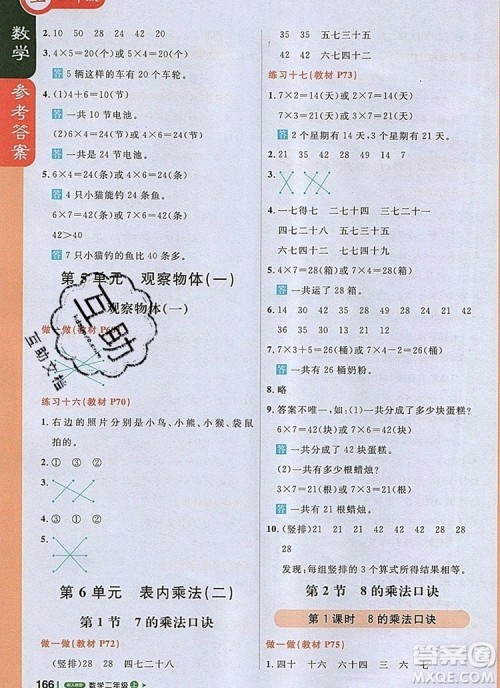 数学
参考答案
2. 10 50 28 54 24 48
3. 4×5=20(个)或 5×4=20(个)
答 5 辆这样的车有 20 个车轮。
4. (1)4+6=10(节)
答 一共 10 节电池。
(2)4×6=24(节)
答 一共是 24 节。
5. 4×6=24(条)或 6×4=24(条)
答 4 只小猫能钓 24 条鱼。
6×7=42(条)或 7×6=42(条)
42>40
答 7 只小猫钓的鱼比 40 条多。
第 5 单元 观察物体(一)
观察物体(一)
做一做(教材
练习十六(教材 P70)
1. 右边的照片分别是小鸟、小熊、小猴、小袋鼠拍的。
2. ① ③ ②
3.
4.
5. ② ③ ①
第 6 单元 表内乘法(二)
第 1 节 7 的乘法口诀
做一做(教材 P72)
(竖排)28 14 四七二十八
166
数学二年级 上
35 35 五七三十五
42 42 六七四十二
练习十七(教材 P73)
1. 7×2=14(天)或 2×7=14(天)
答 2 个星期有 14 天。
7×3=21(天)或 3×7=21(天)
答 3 个星期有 21 天。
2. 21 35 42 28 49 14 7
3.
4. 一七得七 二七十四 三七二十一
四七二十八 五七三十五
六七四十二 七七四十九
5. 7×4=28(箱)或 4×7=28(箱)
答 一共运了 28 箱。
6. 14 21 28 42 32 24
7. 3×7=21(桶)或 7×3=21(桶)
5+21=26(桶)或 21+5=26(桶)
答 一共有 26 桶奶粉。
8. 略
9. 答案不唯一,如(1)一共分成了多少块蛋糕?
6×7=42(块)或 7×6=42(块)
答 一共分成了 42 块蛋糕。
(2)一共有多少根蜡烛?
3×7=21(根)或 7×3=21(根)
答 一共有 21 根蜡烛。
10. (竖排)21 21 21 42 42 42
28 28 28
发现:每组竖排的 3 个算式的结果相同。
第 2 节 8 的乘法口诀
第 1 课时 8 的乘法口诀
做一做(教材 P75)
1. 四十 十六 四十八 三 六 七
互助
互助文档
答案圈
MXQE.COM